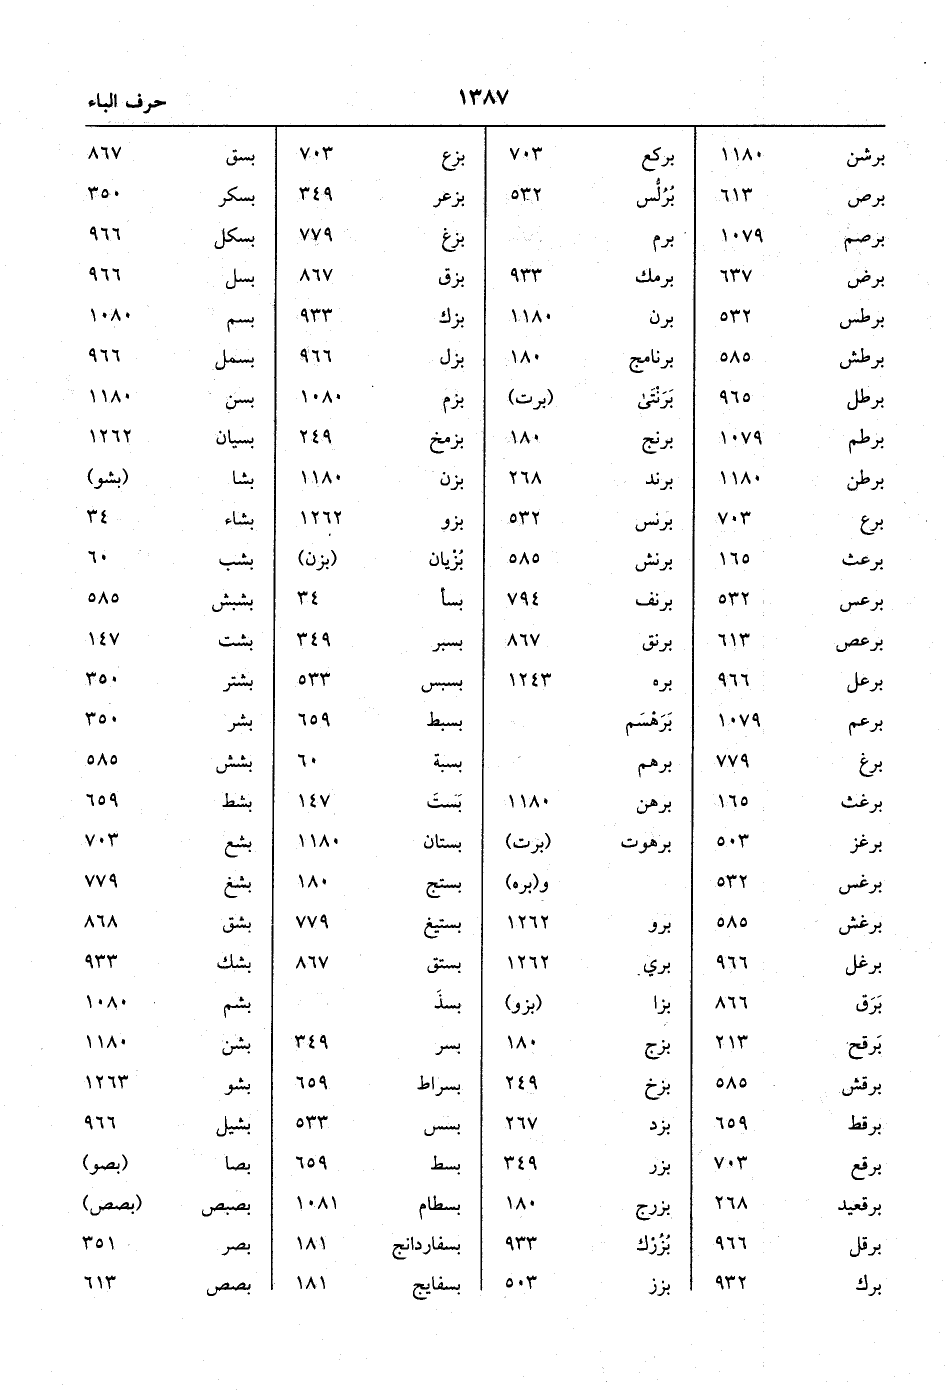 حرف الباء
١٣٨٧
برشن ١١٨٠
برص ٦١٣
برصم ١٠٧٩
برض ٦٣٧
برطس ٥٣٢
برطش ٥٨٥
برطل ٩٦٥
برطم ١٠٧٩
برطن ١١٨٠
برع ٧٠٣
برعث ١٦٥
برعس ٥٣٢
برعص ٦١٣
برعل ٩٦٦
برعم ١٠٧٩
برغ ٧٧٩
برغث ١٦٥
برغز ٥٠٣
برغس ٥٣٢
برغش ٥٨٥
برغل ٩٦٦
بَرَق ٨٦٦
بَرقح ٢١٣
برقش ٥٨٥
برقط ٦٥٩
برقع ٧٠٣
برقعيد ٢٦٨
برقل ٩٦٦
برك ٩٣٢
بركع ٧٠٣
بُرُلُّس ٥٣٢
برم
برمك ٩٣٣
برن ١١٨٠
برنامج ١٨٠
بَرَنْتَىٰ (برت)
برنج ١٨٠
برند ٢٦٨
برنس ٥٣٢
برنش ٥٨٥
برنف ٧٩٤
برنق ٨٦٧
بره ١٢٤٣
بَرَهْسَم
برهم
برهن ١١٨٠
برهوت (برت)
و(بره)
برو ١٢٦٢
بري ١٢٦٢
بزا (بزو)
بزج ١٨٠
بزخ ٢٤٩
بزد ٢٦٧
بزر ٣٤٩
بزرج ١٨٠
بُزُرْك ٩٣٣
بزز ٥٠٣
بزع ٧٠٣
بزعر ٣٤٩
بزغ ٧٧٩
بزق ٨٦٧
بزك ٩٣٣
بزل ٩٦٦
بزم ١٠٨٠
بزمخ ٢٤٩
بزن ١١٨٠
بزو ١٢٦٢
بُزْيان (بزن)
بسأ ٣٤
بسبر ٣٤٩
بسبس ٥٣٣
بسبط ٦٥٩
بسبة ٦٠
بَستَ ١٤٧
بستان ١١٨٠
بستج ١٨٠
بستيغ ٧٧٩
بستق ٨٦٧
بسذَ
بسر ٣٤٩
بسراط ٦٥٩
بسس ٥٣٣
بسط ٦٥٩
بسطام ١٠٨١
بسفاردانج ١٨١
بسفايج ١٨١
بسق ٨٦٧
بسكر ٣٥٠
بسكل ٩٦٦
بسل ٩٦٦
بسم ١٠٨٠
بسمل ٩٦٦
بسن ١١٨٠
بسيان ١٢٦٢
بشا (بشو)
بشاء ٣٤
بشب ٦٠
بشبش ٥٨٥
بشت ١٤٧
بشتر ٣٥٠
بشر ٣٥٠
بشش ٥٨٥
بشط ٦٥٩
بشع ٧٠٣
بشغ ٧٧٩
بشق ٨٦٨
بشك ٩٣٣
بشم ١٠٨٠
بشن ١١٨٠
بشو ١٢٦٣
بشيل ٩٦٦
بصا (بصو)
بصبص (بصص)
بصر ٣٥١
بصص ٦١٣